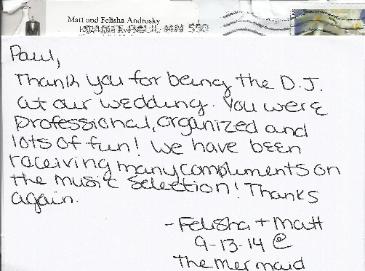 Matt and Felisha Androsky
SAINT PAUL MN 550
Paul,
Thank you for being the D.J.
at our wedding. You were
professional, organized and
lots of fun! We have been
receiving many compliments on
the music selection! Thanks
again.
- Felisha + Matt
9-13-14 @
The Mermaid